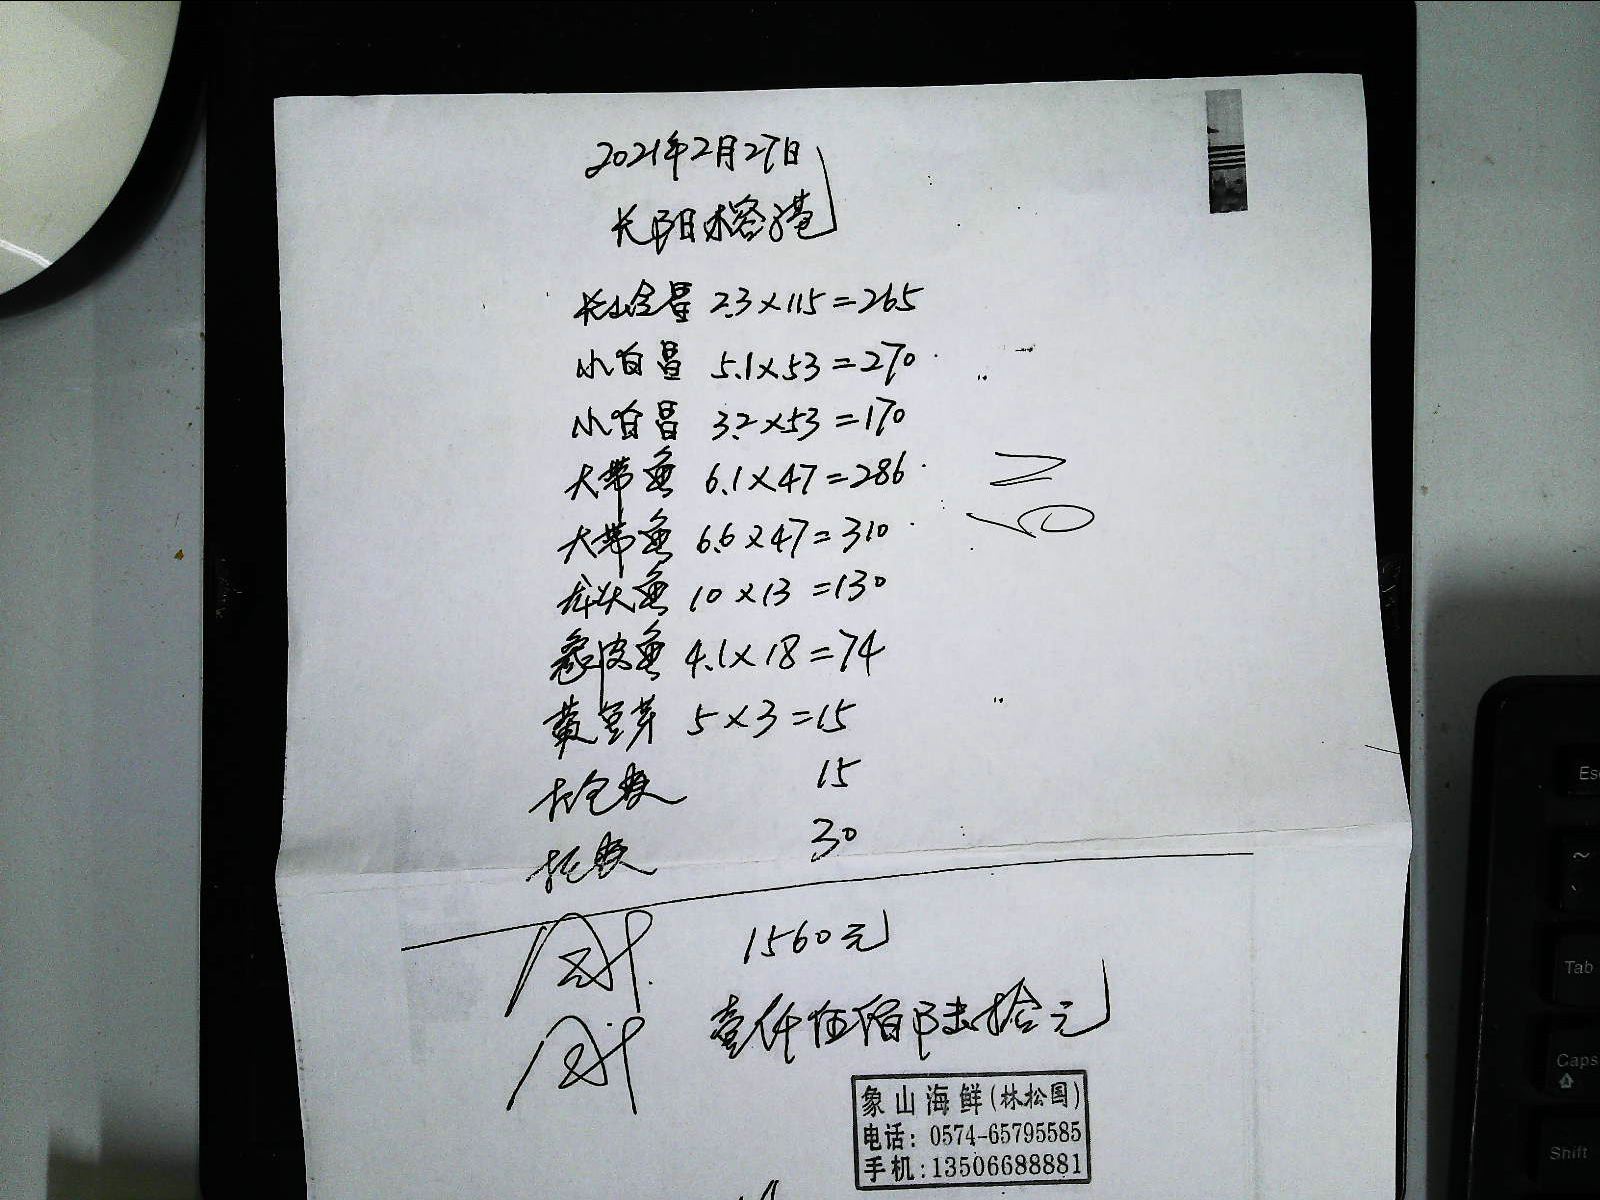 2021年2月27日
长阳木容港
长山仓昌 2.3×115=265
小白昌 5.1×53=270
小白昌 3.2×53=170
大带鱼 6.1×47=286
大带鱼 6.6×47=310
龙头鱼 10×13=130
象皮鱼 4.1×18=74
黄豆芽 5×3=15
15
30
1560元
壹仟伍佰陆拾元
象山海鲜(林松国)
电话: 0574-65795585
手机:13506688881
Esc
~
Tab
Caps
Shift